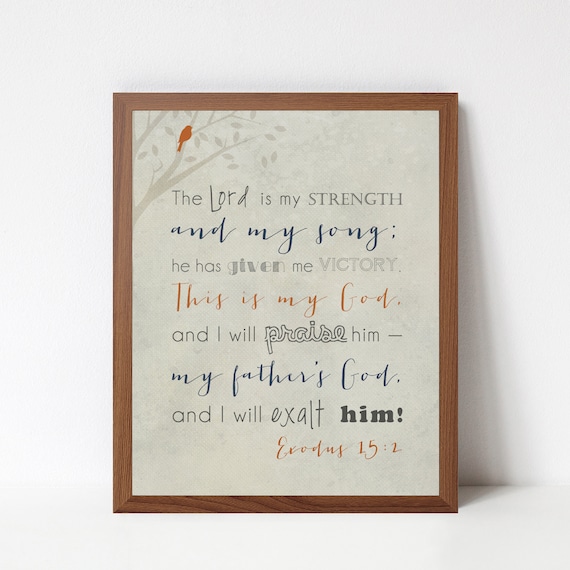 The Lord is my STRENGTH
and my song;
he has given me VICTORY.
This is my God,
and I will praise him —
my father's God,
and I will exalt him!
Exodus 15:2